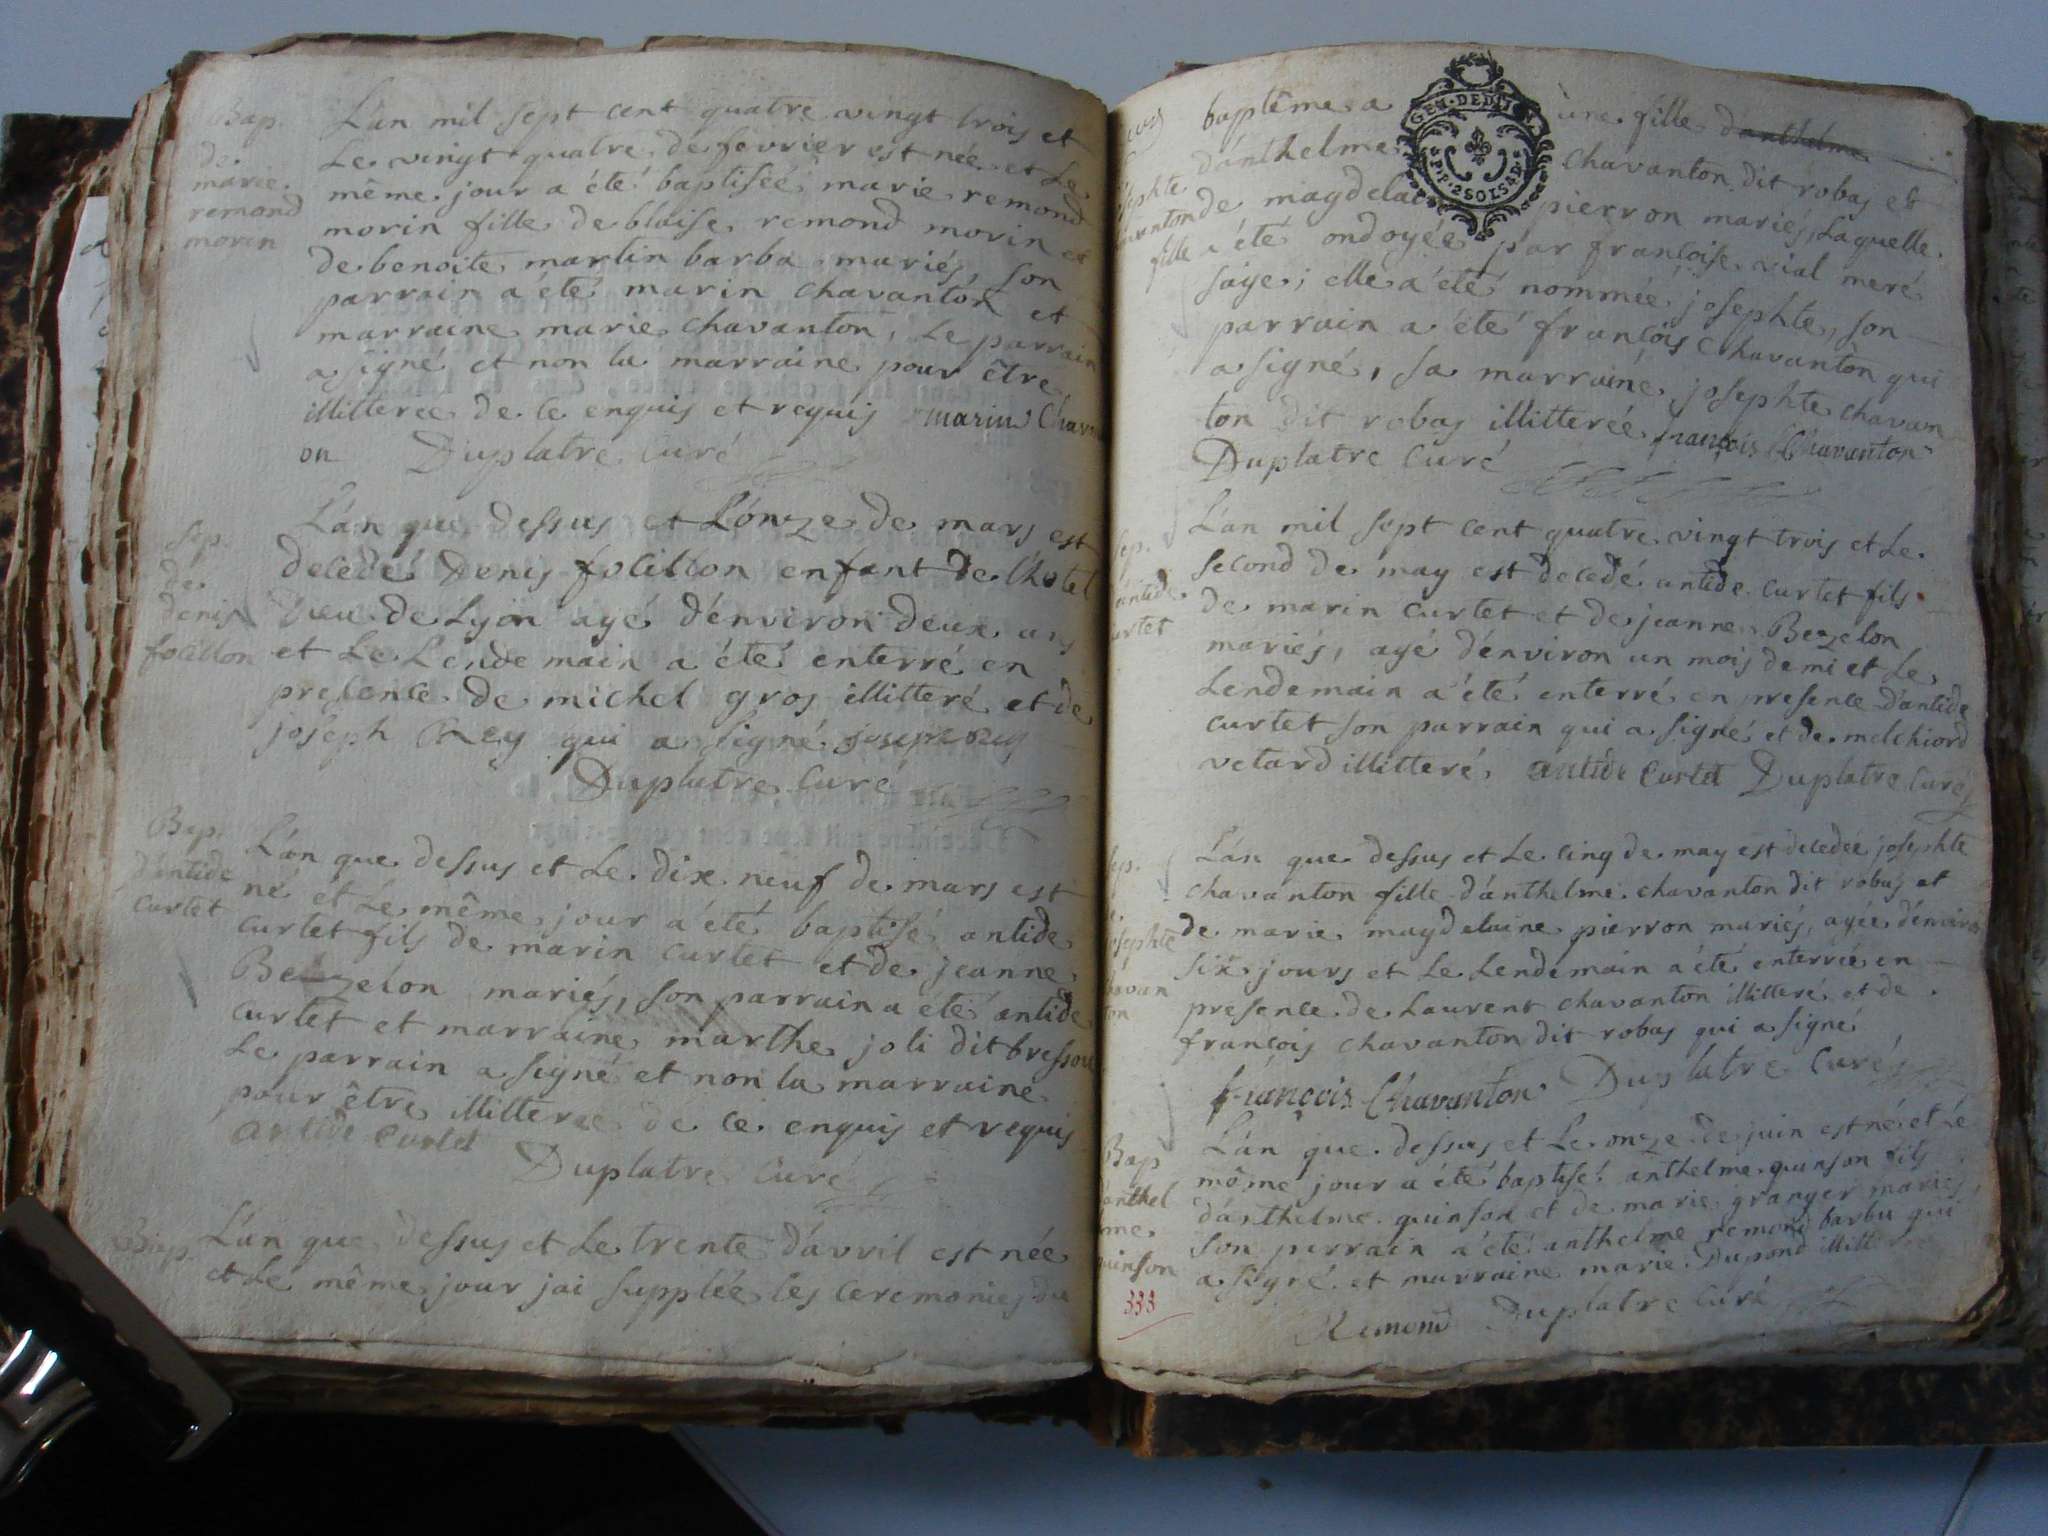 Bap.
de
marie
remond
morin
L'an mil sept cent quatre vingt trois et
Le vingt quatre de fevrier est née et Le
même jour a été baptisée marie remond
morin fille de blaise remond morin et
de benoite martin barba mariés, son
parrain a été marin chavanton et
marraine marie chavanton, Le parrain
a signé et non la marraine pour être
illitterée de ce enquis et requis marin Chavan
on Duplatre Curé
Sep.
de
denis
folillon
L'an que dessus et L'onze de mars est
decedé Denis folillon enfant de L'hotel
Dieu de Lyon agé d'environ deux ans
et Le Lendemain a été enterré en
presence de michel gros illitteré et de
joséph Rey qui a signé joseph rey
Duplatre Curé
Bap.
d'antide
curtet
L'an que dessus et Le dix neuf de mars est
né et Le même jour a été baptisé antide
curtet fils de marin curtet et de jeanne
Bezelon mariés, son parrain a été antide
curtet et marraine marthe joli dit bresson
Le parrain a signé et non la marraine
pour être illitterée de ce enquis et requis
antide curtet
Duplatre Curé
Bap.
L'an que dessus et Le trente d'avril est née
et Le même jour jai supplée les ceremonies du
baptême a une fille danthelme
GEN. DEDIT
P.P. 2 SOLS 4 D.
d'anthelme chavanton dit robas et
de magdelaine pierron mariés, Laquelle
fille a été ondoyée par françoise vial meré
sage; elle a été nommée josephte, son
parrain a été françois Chavanton qui
a signé, sa marraine josephte chavan
ton dit robas illitterée françois Chavanton
Duplatre Curé
sep.
antide
curtet
L'an mil sept cent quatre vingt trois et Le
second de may est decedé antide curtet fils
de marin curtet et de jeanne Bezelon
mariés, agé d'environ un mois demi et Le
Lendemain a été enterré en presence d'antide
curtet son parrain qui a signé et de melchiord
vetard illitteré antide curtet Duplatre Curé
sep.
josephte
chavan
ton
L'an que dessus et Le cinq de may est decedée josephte
chavanton fille d'anthelme chavanton dit robas et
de marie magdelaine pierron mariés, agée d'environ
six jours et Le Lendemain a été enterrée en
presence de Laurent chavanton illitteré et de
françois chavanton dit robas qui a signé
françois Chavanton Duplatre Curé
Bap
d'anthel
me
quinson
L'an que dessus et Le onze de juin est né et Le
même jour a été baptisé anthelme quinson fils
d'anthelme quinson et de marie granger mariés
son parrain a été anthelme remond barba qui
a signé et marraine marie Dupond illitt
Remond Duplatre Curé
333